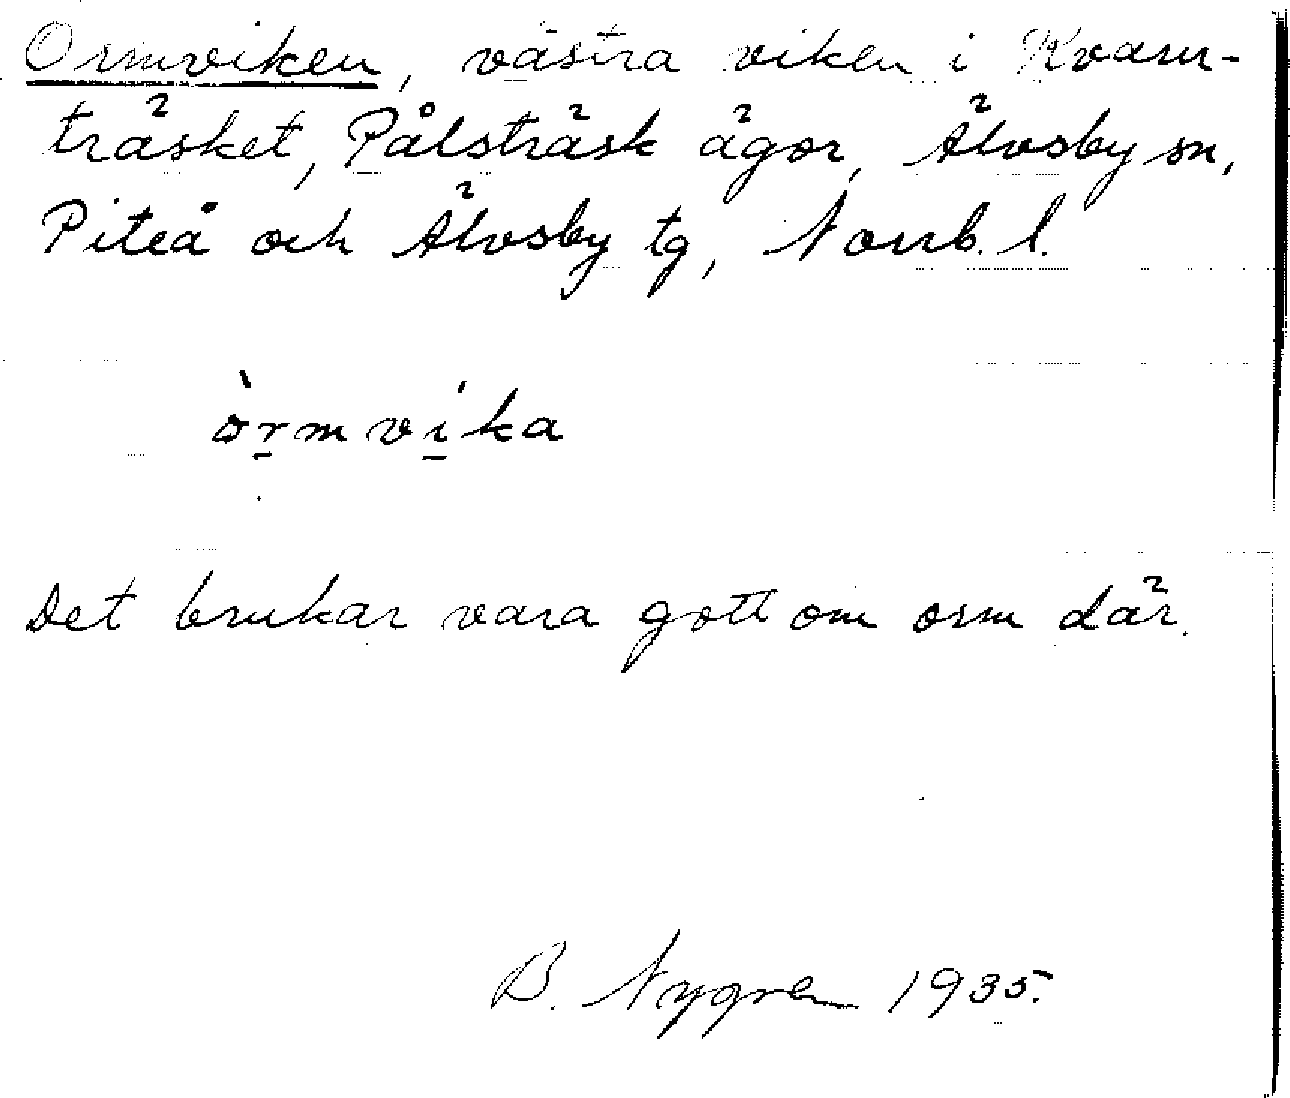 Ormviken, västra viken i Kvarn-
träsket, Pålsträsk ägor, Älvsby sn,
Piteå och Älvsby tg, Norrb. l.
òrmvíka
Det brukar vara gott om orm där.
B. Nygren 1935.